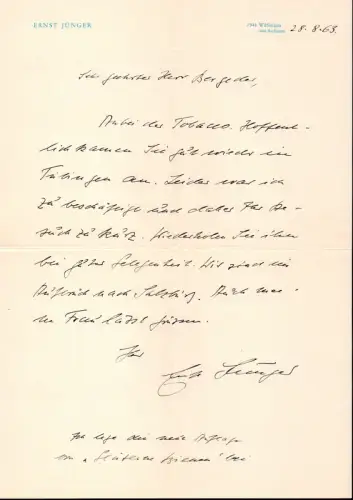 ERNST JÜNGER
7941 Wilflingen
über Riedlingen
28.8.63.
Sehr geehrter Herr Bergeder,
Anbei der Tobacco. Hoffent-
lich kamen Sie gut wieder in
Tübingen an. Leider war ich
zu beschäftigt und daher Ihr Be-
such zu kurz. Wiederholen Sie ihn
bei guter Gelegenheit. Wir sind im
Aufbruch nach Salzburg. Auch mei-
ne Frau lässt grüssen.
Ihr
Ernst Jünger
Ich lege die neue Auflage
von „ bei